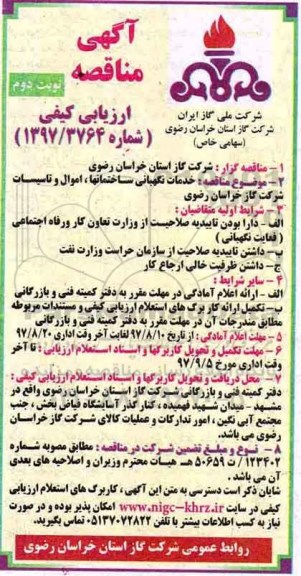 آگهی
مناقصه
نوبت دوم
شرکت ملی گاز ایران
شرکت گاز استان خراسان رضوی
(سهامی خاص)
ارزیابی کیفی
( شماره ۱۳۹۷/۳۷۶۴)
۱- مناقصه گزار : شرکت گاز استان خراسان رضوی
۲- موضوع مناقصه : خدمات نگهبانی ساختمانها ، اموال و تاسیسات
شرکت گاز استان خراسان رضوی
۳- شرایط اولیه متقاضیان :
الف - دارا بودن تاییدیه صلاحیت از وزارت تعاون کار ورفاه اجتماعی
( فعایت نگهبانی )
ب- داشتن تاییدیه صلاحیت از سازمان حراست وزارت نفت
ج- داشتن ظرفیت خالی ارجاع کار
۴ - سایر شرایط :
الف - ارائه اعلام آمادگی در مهلت مقرر به دفتر کمیته فنی و بازرگانی
ب- تکمیل ارائه کاربرگ های استعلام ارزیابی کیفی و مستندات مربوطه
مطابق مندرجات آن در مهلت مقرر به دفتر کمیته فنی و بازرگانی
۵ - مهلت اعلام آمادگی : از تاریخ ۹۷/۸/۱۰ لغایت آخر وقت اداری ۹۷/۸/۲۰
۶- مهلت تکمیل و تحویل کاربرگها و اسناد استعلام ارزیابی : تا آخر
وقت اداری مورخ ۹۷/۹/۵
۷- محل دریافت و تحویل کاربرگها و اسناد استعلام ارزیابی کیفی :
دفتر کمیته فنی و بازرگانی شرکت گاز استان خراسان رضوی واقع در
مشهد - میدان شهید فهمیده ، کنار گذر آسایشگاه فیاض بخش ، جنب
مجتمع آبی نگین ، امور تدارکات و عملیات کالای شرکت گاز خراسان
رضوی می باشد.
۸- نوع و مبلغ تضمین شرکت در مناقصه : مطابق مصوبه شماره
۱۲۳۴۰۲ / ت ۵۰۶۵۹ هـ هیات محترم وزیران و اصلاحیه های بعدی
آن می باشد .
شایان ذکر است دسترسی به متن این آگهی ، کاربرگ های استعلام ارزیابی
کیفی در سایت www.nigc-khrz.ir امکان پذیر بوده و در صورت
نیاز به کسب اطلاعات بیشتر با تلفن ۰۵۱۳۷۰۷۲۸۲۲ تماس بگیرید.
روابط عمومی شرکت گاز استان خراسان رضوی